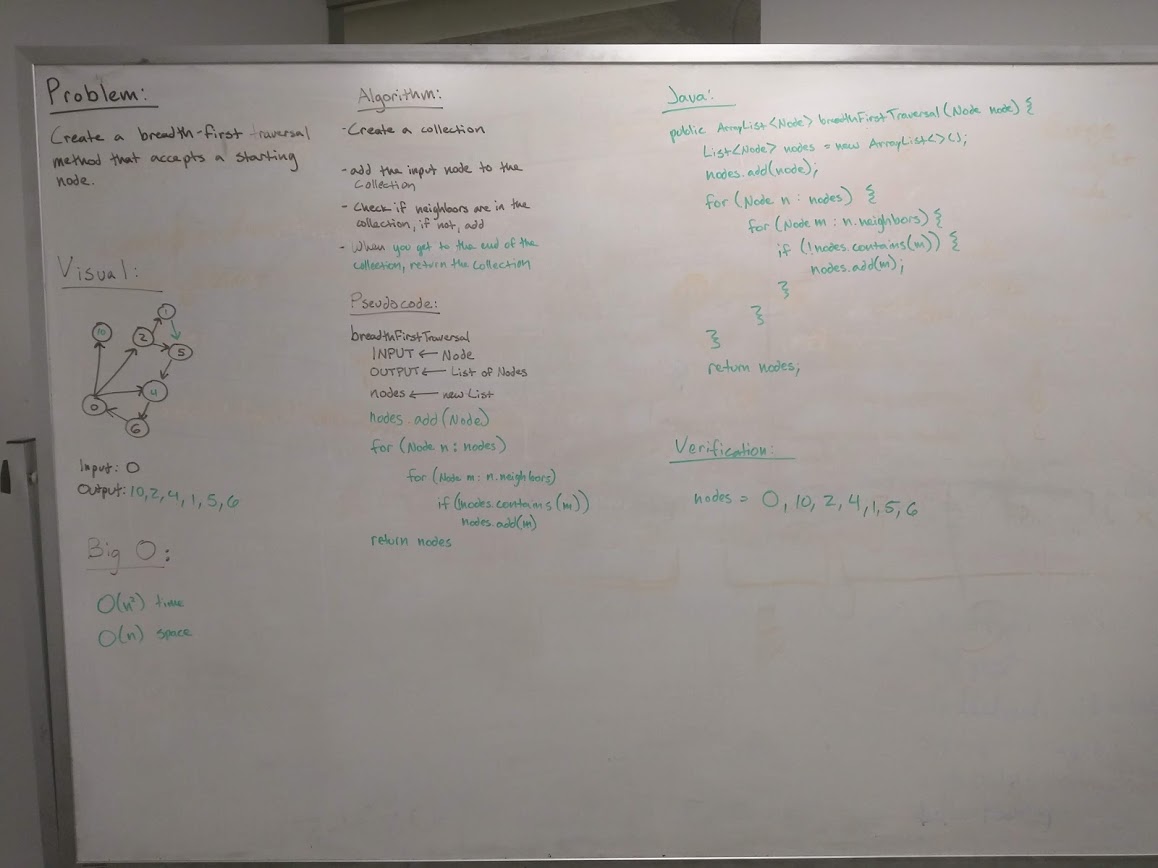 Problem:
Create a breadth-first traversal
method that accepts a starting
node.
Visual:
1
10
2
5
4
0
6
Input: 0
Output: 10, 2, 4, 1, 5, 6
Big O:
O(n²) time
O(n) space
Algorithm:
- Create a collection
- add the input node to the
collection
- Check if neighbors are in the
collection, if not, add
- When you get to the end of the
collection, return the collection
Pseudocode:
breadthFirstTraversal
INPUT ← Node
OUTPUT ← List of Nodes
nodes ← new List
nodes.add(Node)
for (Node n : nodes)
for (Node m : n.neighbors)
if (!nodes.contains(m))
nodes.add(m)
return nodes
Java:
public ArrayList<Node> breadthFirstTraversal(Node node) {
List<Node> nodes = new ArrayList<>();
nodes.add(node);
for (Node n : nodes) {
for (Node m : n.neighbors) {
if (!nodes.contains(m)) {
nodes.add(m);
}
}
}
return nodes;
Verification:
nodes = 0, 10, 2, 4, 1, 5, 6